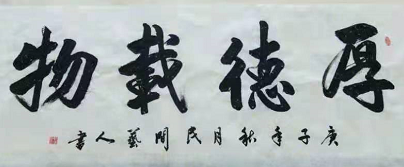 厚德載物
庚子年秋月民間藝人書